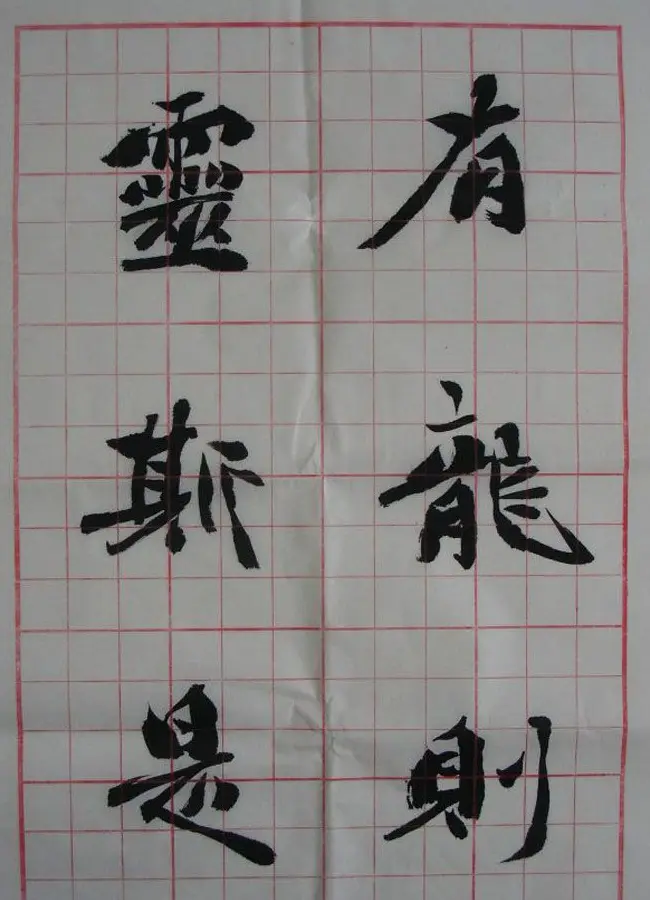 有龍則
靈斯是